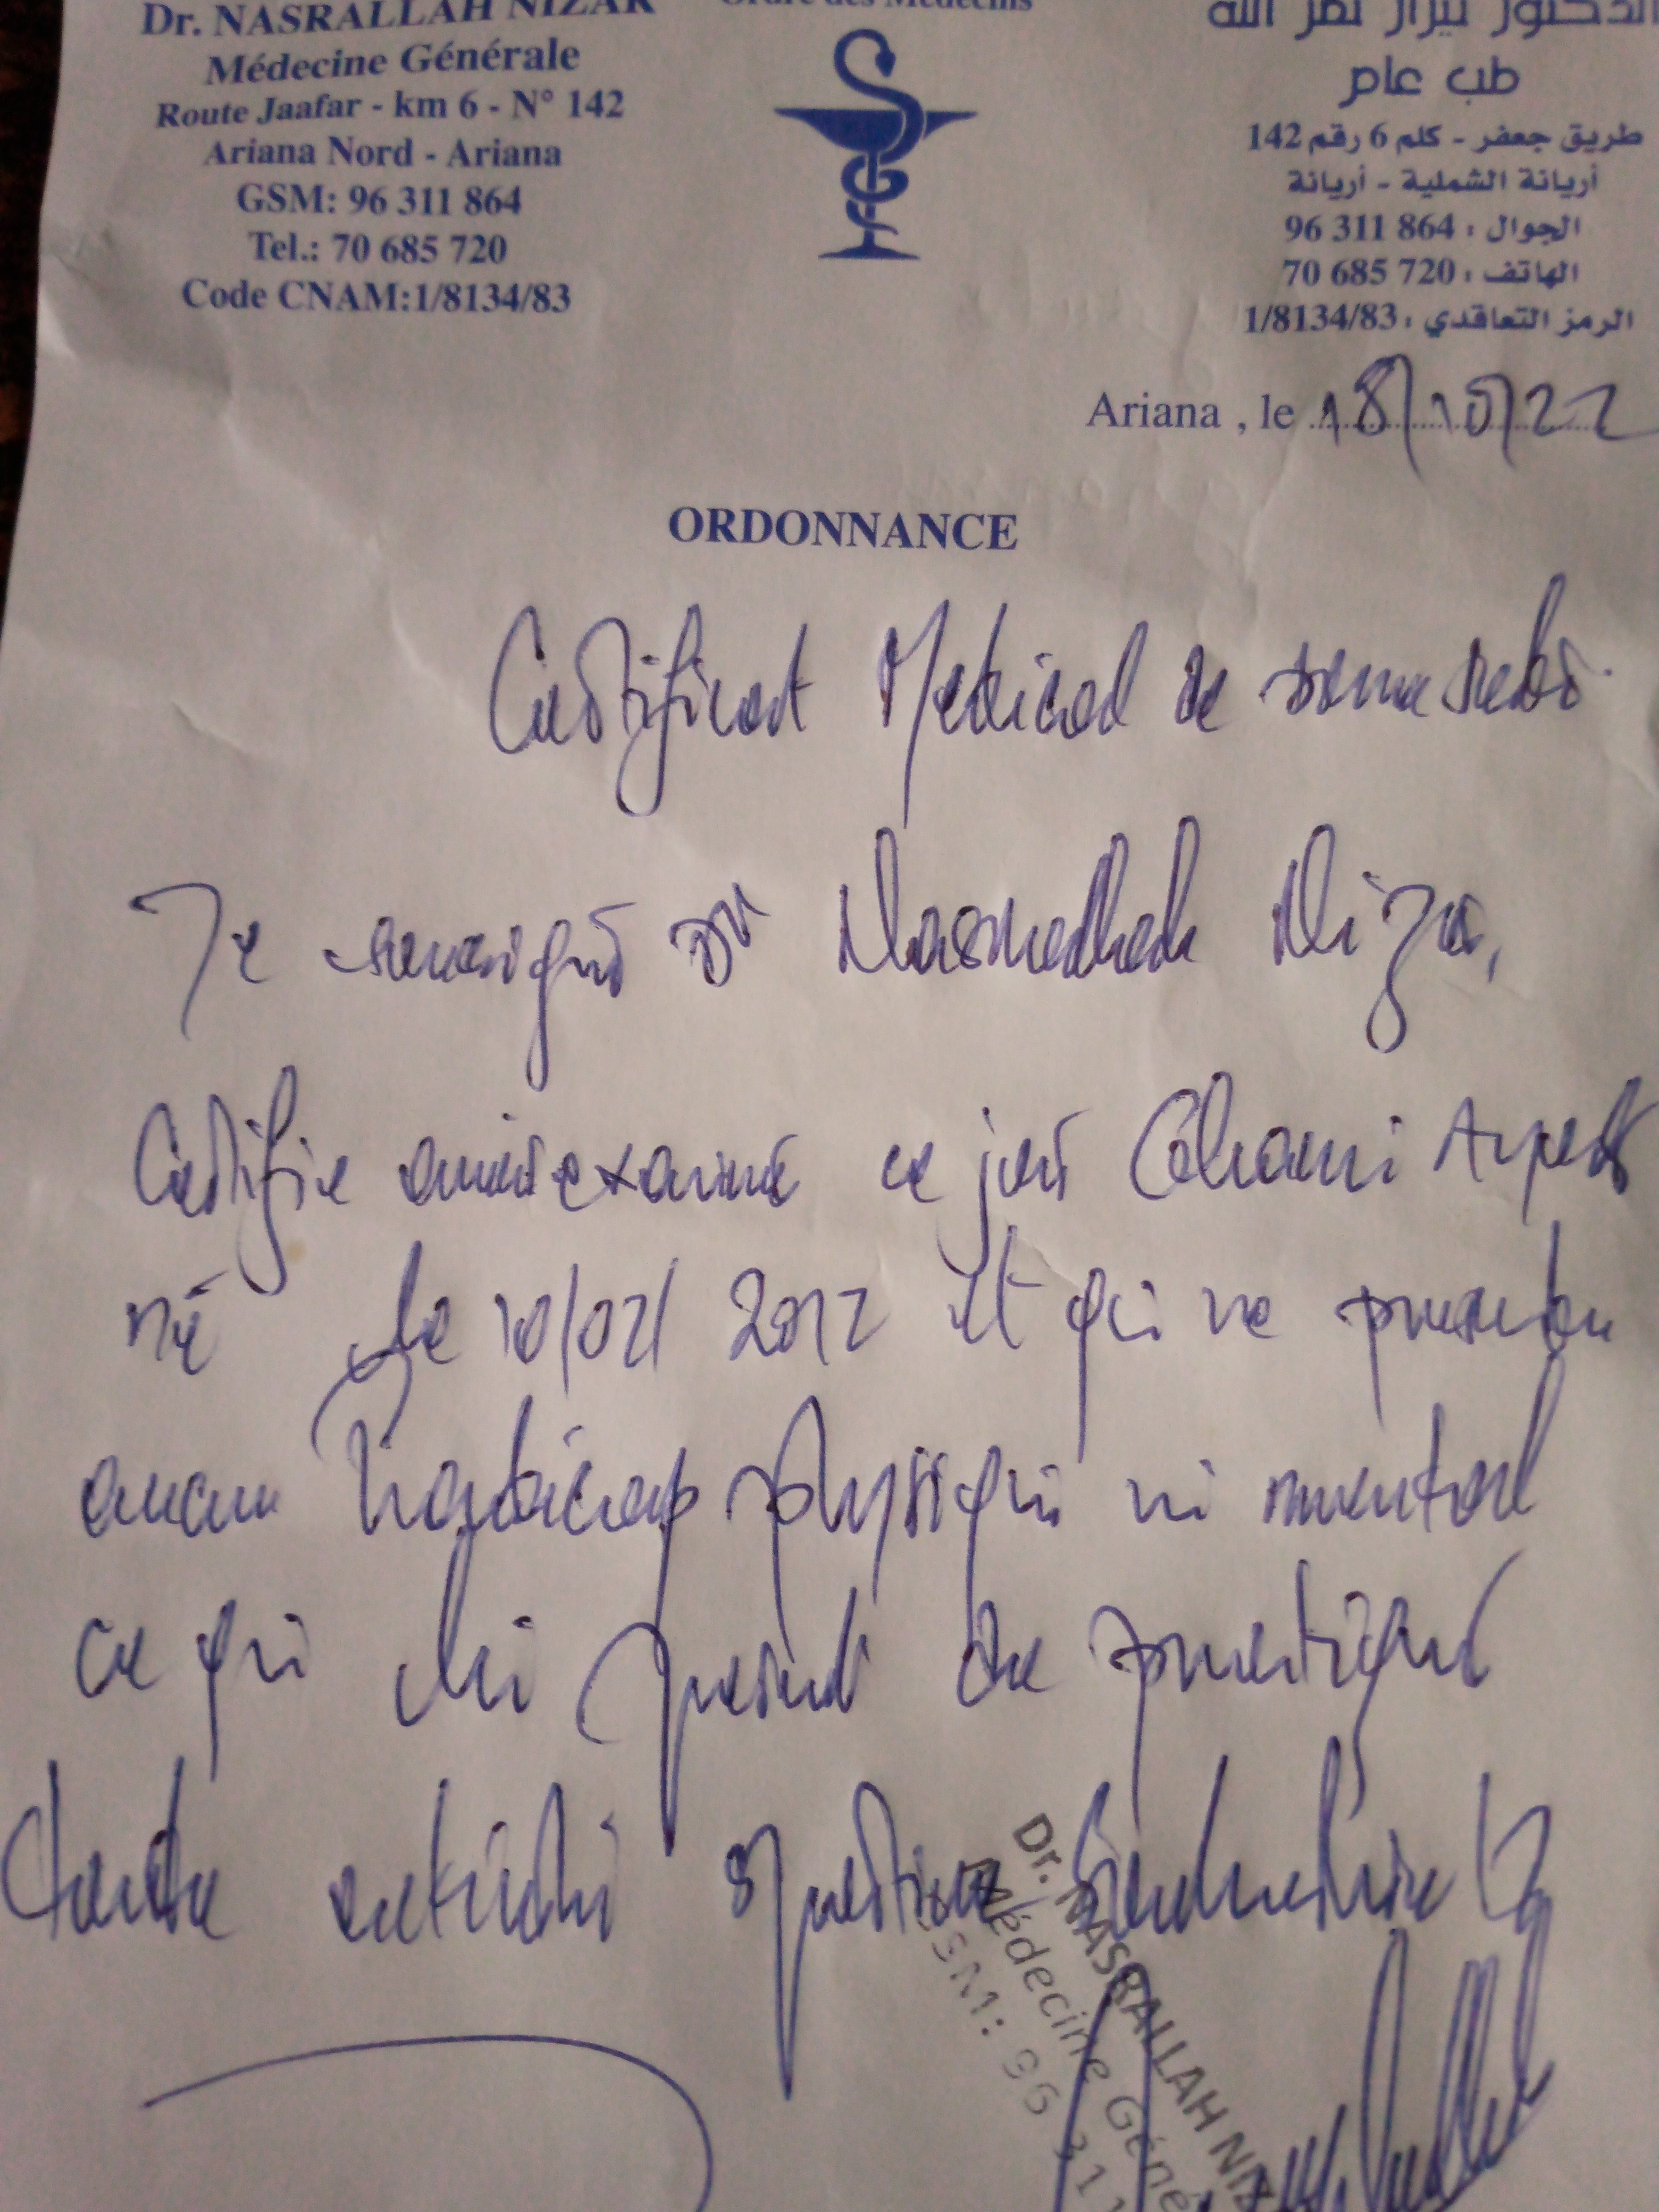 Dr. NASRALLAH NIZAR
Médecine Générale
Route Jaafar - km 6 - N° 142
Ariana Nord - Ariana
GSM: 96 311 864
Tel.: 70 685 720
Code CNAM:1/8134/83
Ordre des Médecins
الدكتور نيزار نصر الله
طب عام
طريق جعفر - كلم 6 رقم 142
أريانة الشملية - أريانة
الجوال : 96 311 864
الهاتف : 70 685 720
الرمز التعاقدي : 1/8134/83
Ariana , le 18/10/22
ORDONNANCE
Certificat Medical de
Je soussigné Dr Nasrallah Nizar,
Certifie avoir examiné ce jour
né le 10/02/2012 et qui ne presente
aucun handicap physique ni mental
ce qui lui permet de pratiquer
toute activité sportive
Dr. NASRALLAH NIZ
Médecine Géné
GSM: 96 311